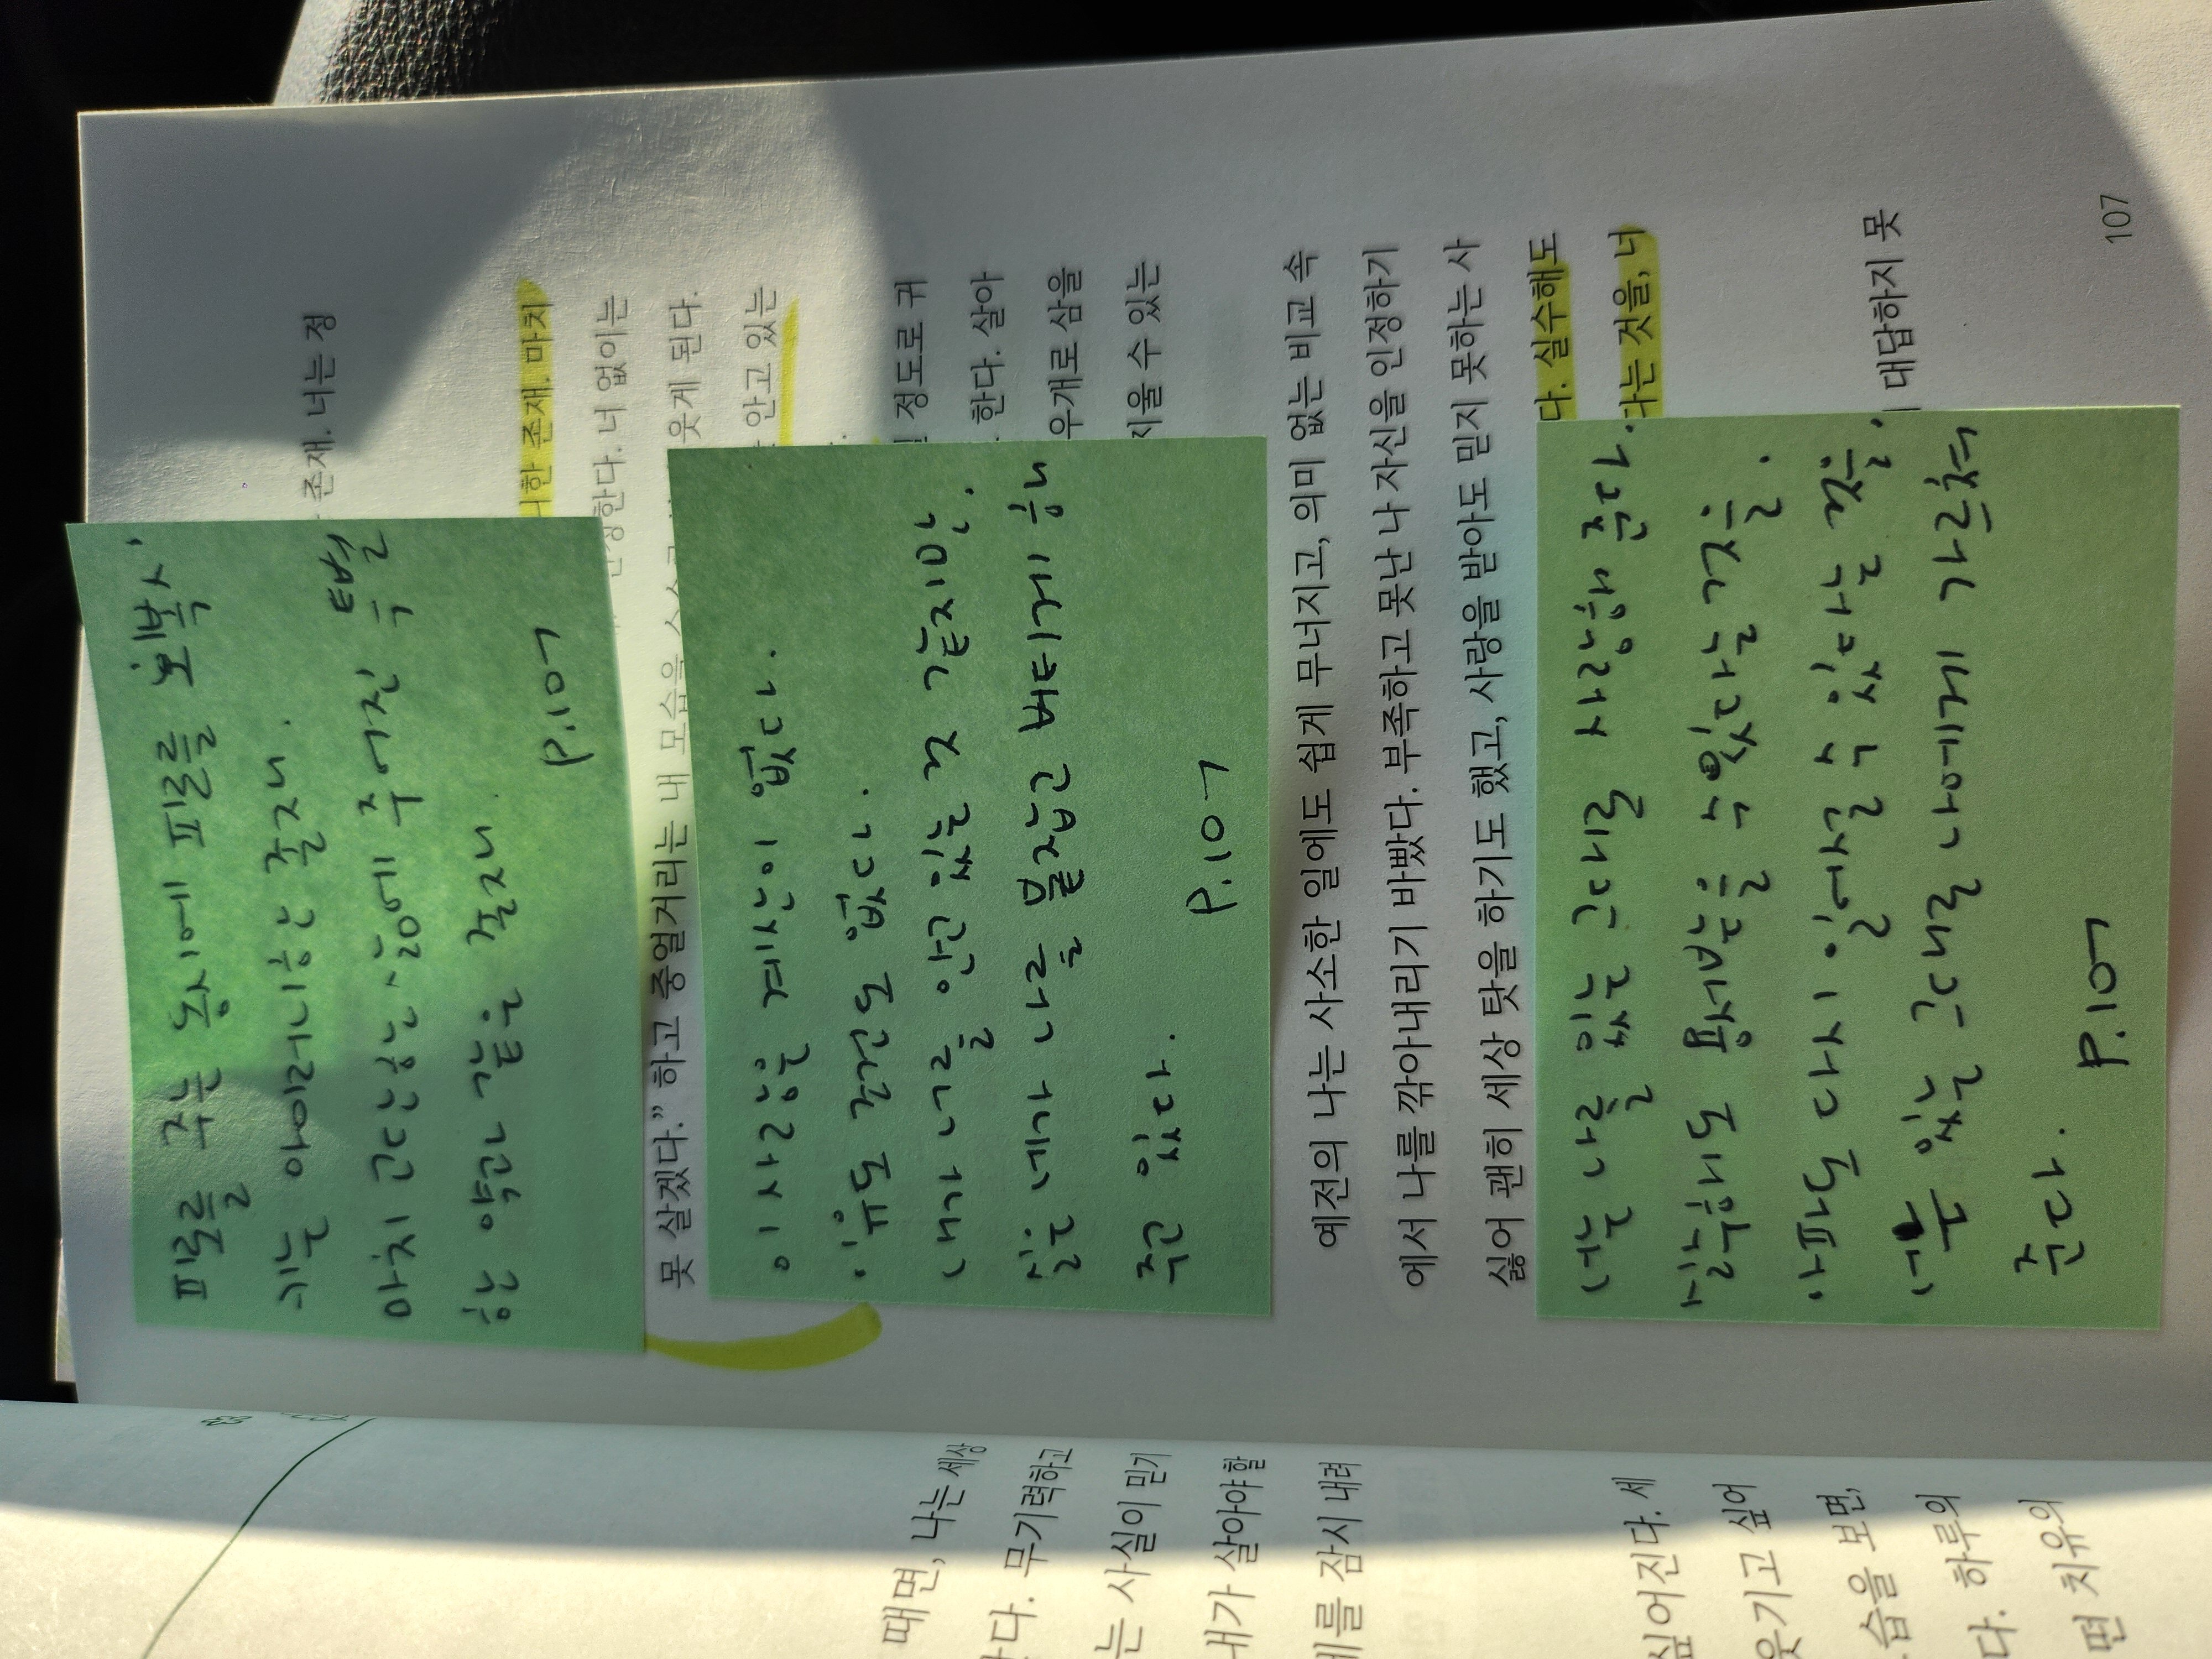 때면, 나는 세상
다. 무기력하고
는 사실이 믿기
내가 살아야 할
를 잠시 내려
싶어진다. 세
웃기고 싶어
습을 보면,
다. 하루의
면 치유의
존재. 너는 정
한 존재. 마치
한다. 너 없이는
웃게 된다.
못 살겠다.” 하고 중얼거리는 내 모습을
안고 있는
정도로 귀
한다. 살아
우개로 삶을
지울 수 있는
예전의 나는 사소한 일에도 쉽게 무너지고, 의미 없는 비교 속
에서 나를 깎아내리기 바빴다. 부족하고 못난 나 자신을 인정하기
싫어 괜히 세상 탓을 하기도 했고, 사랑을 받아도 믿지 못하는 사
다. 실수해도
다는 것을, 너
대답하지 못
107
피로를 주는 동시에 피로를 회복시
키는 아이러니한 존재.
마치 고단한 삶에 주어진 특별
한 약과 같은 존재.
P.107
이 사랑은 계산이 없다.
이유도 조건도 없다.
내가 너를 안고 있는 것 같지만.
실은 네가 나를 붙잡고 버티게 해
주고 있다.
P.107
너는 나를 있는 그대로 사랑해 준다.
실수해도 용서받을 수 있다는 것을.
아파도 다시 일어설 수 있다는 것을,
너는 있는 그대로 나에게 가르쳐
준다.
P.107